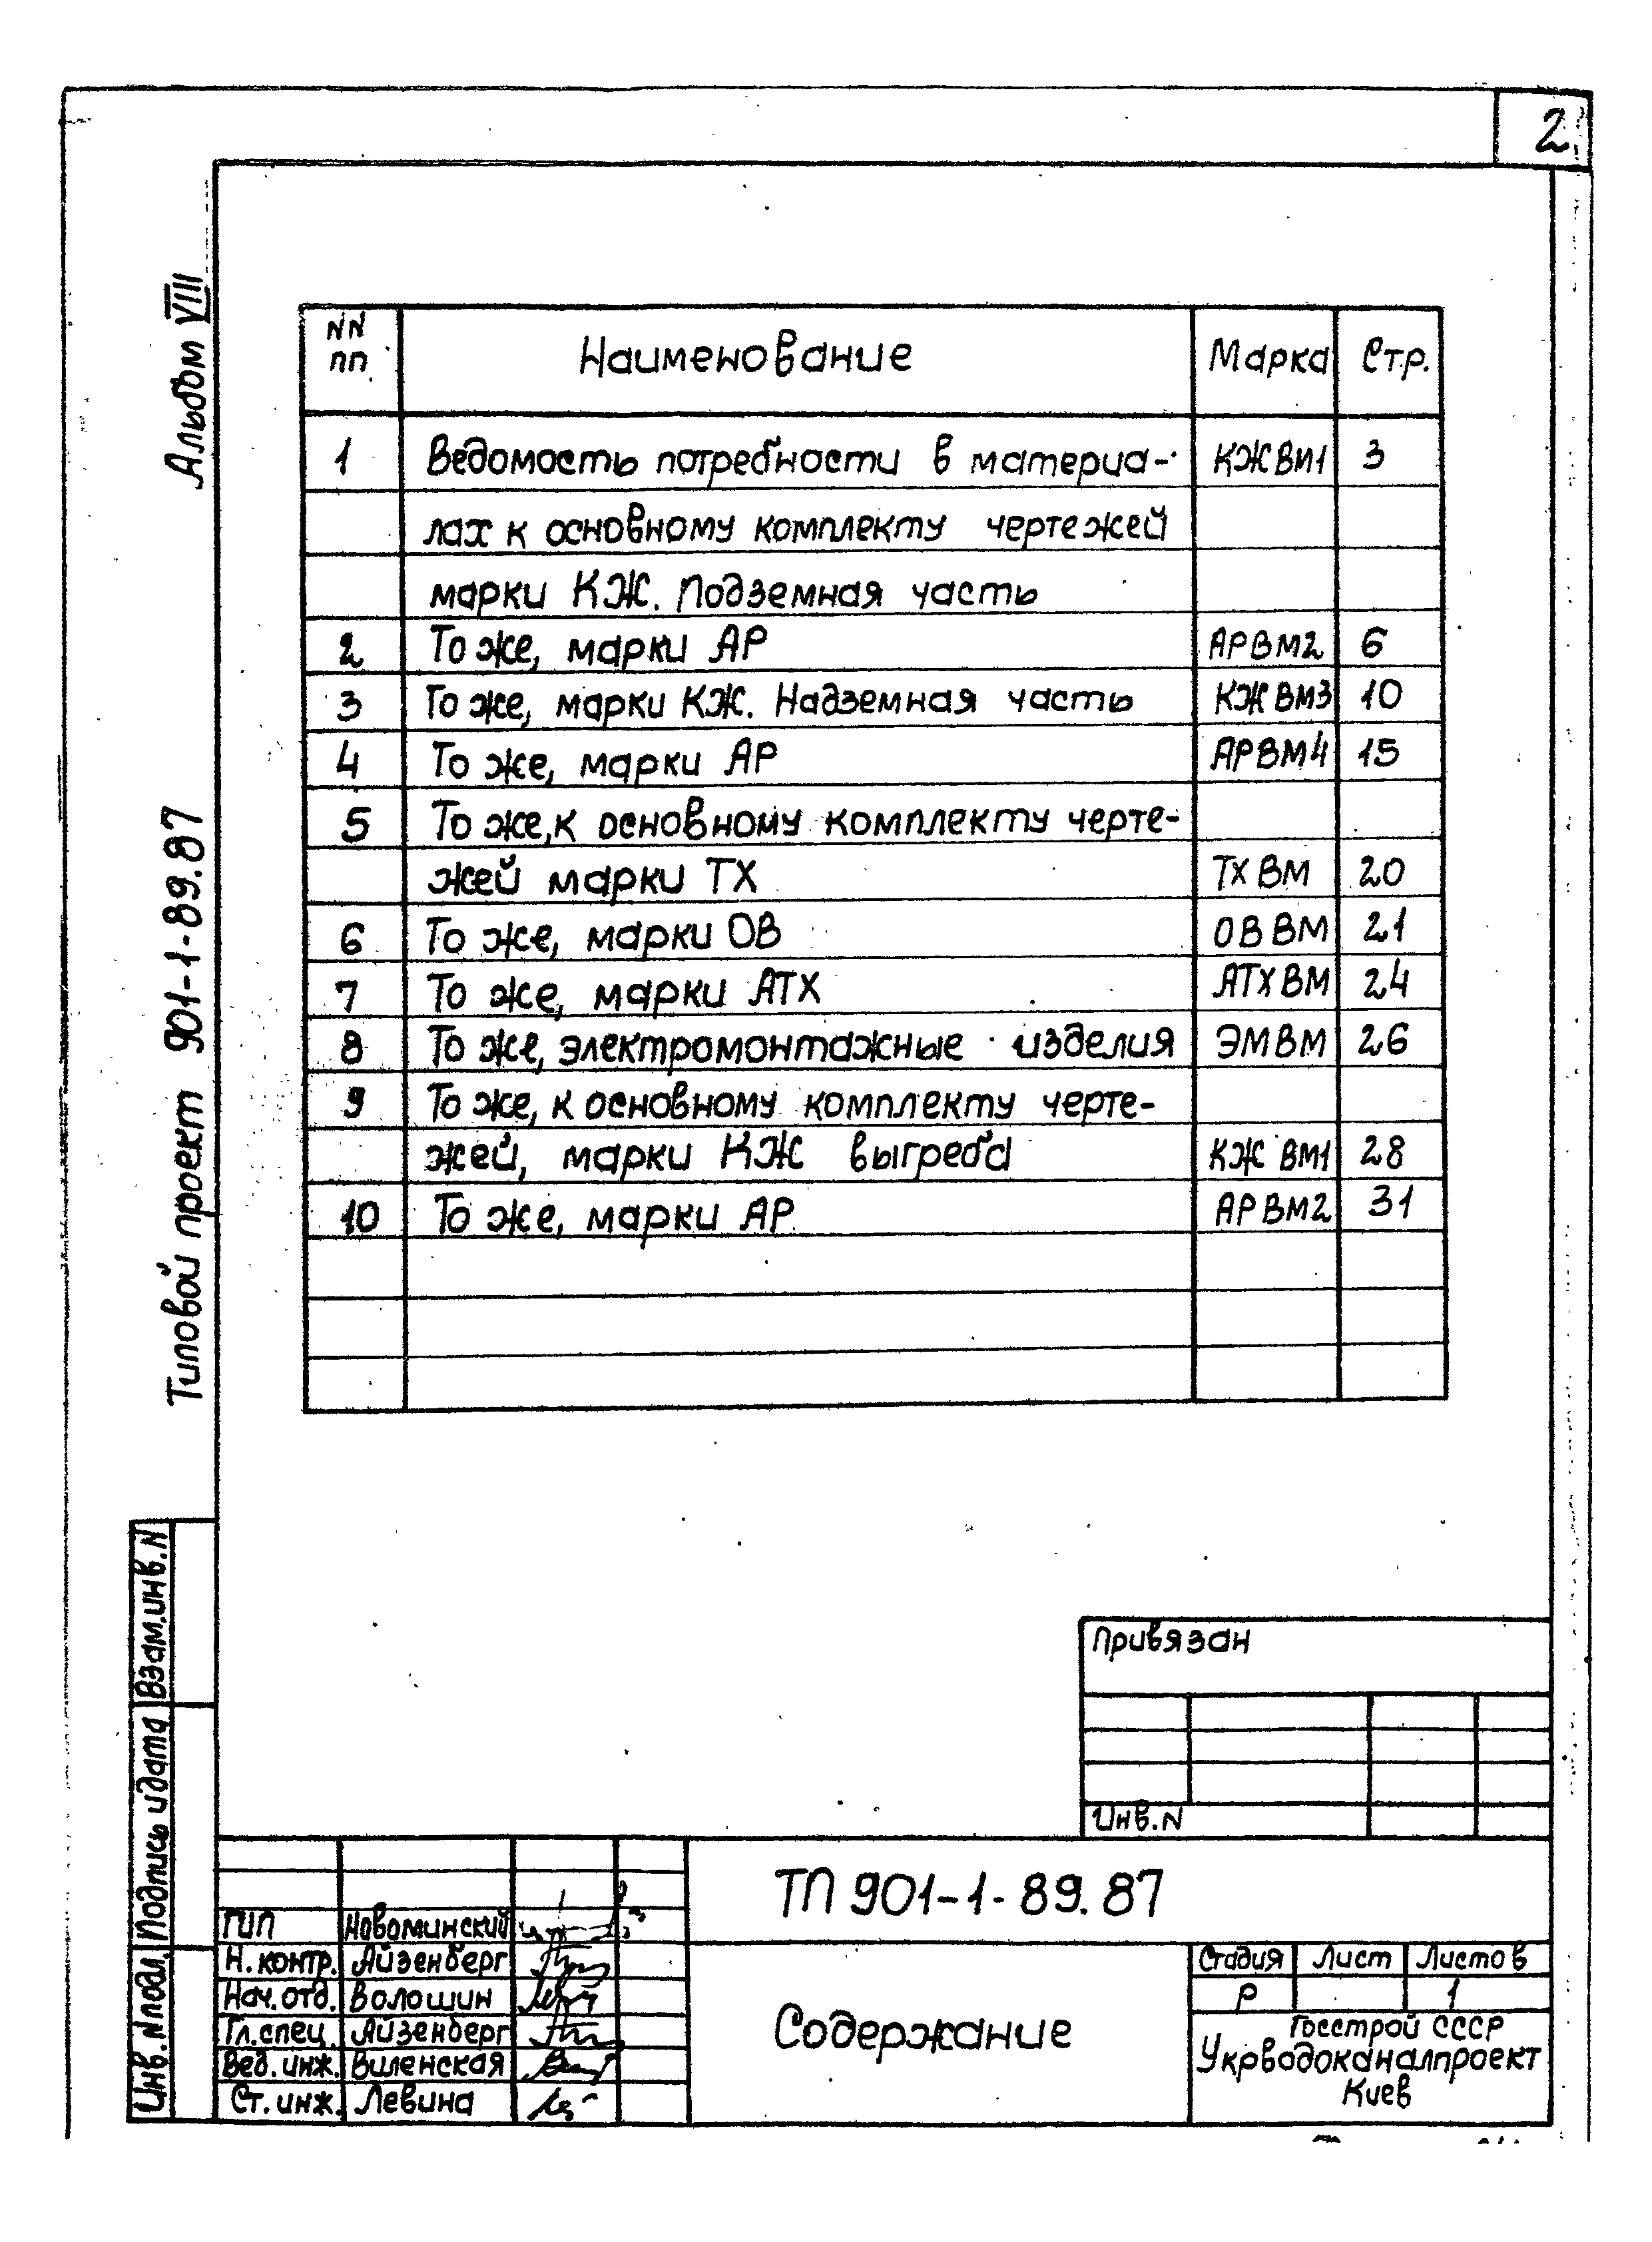 2
Альбом VIII
Типовой проект 901-1-89.87
NN пп. Наименование Марка Стр.
1 Ведомость потребности в материа- КЖВМ1 3
лах к основному комплекту чертежей
марки КЖ. Подземная часть
2 То же, марки АР АРВМ2 6
3 То же, марки КЖ. Надземная часть КЖВМ3 10
4 То же, марки АР АРВМ4 15
5 То же, к основному комплекту черте-
жей марки ТХ ТХ ВМ 20
6 То же, марки ОВ ОВ ВМ 21
7 То же, марки АТХ АТХ ВМ 24
8 То же, электромонтажные изделия ЭМ ВМ 26
9 То же, к основному комплекту черте-
жей, марки КЖ выгреба КЖ ВМ1 28
10 То же, марки АР АР ВМ2 31
Взам.инв.N
Подпись и дата
Инв.Nподл.
Привязан
Инв.N
ТП 901-1-89.87
ГИП Новоминский
Н.контр. Айзенберг
Нач.отд. Волошин
Гл.спец. Айзенберг
Вед.инж. Виленская
Ст.инж. Левина
Содержание
Стадия Лист Листов
Р 1
Госстрой СССР
Укрводоканалпроект
Киев